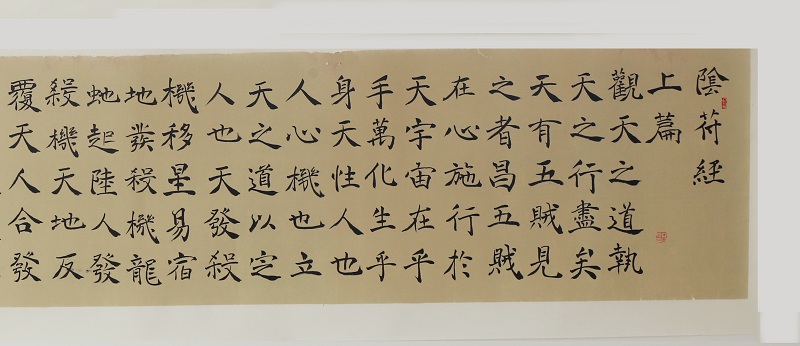 陰苻經
上篇
觀天之道執
天之行盡矣
天有五賊見
之者昌五賊
在心施行於
天宇宙在乎
手萬化生乎
身天性人也
人心機也立
天之道以定
人也天發殺
機移星易宿
地發殺機龍
虵起陸人發
殺機天地反
覆天人合發